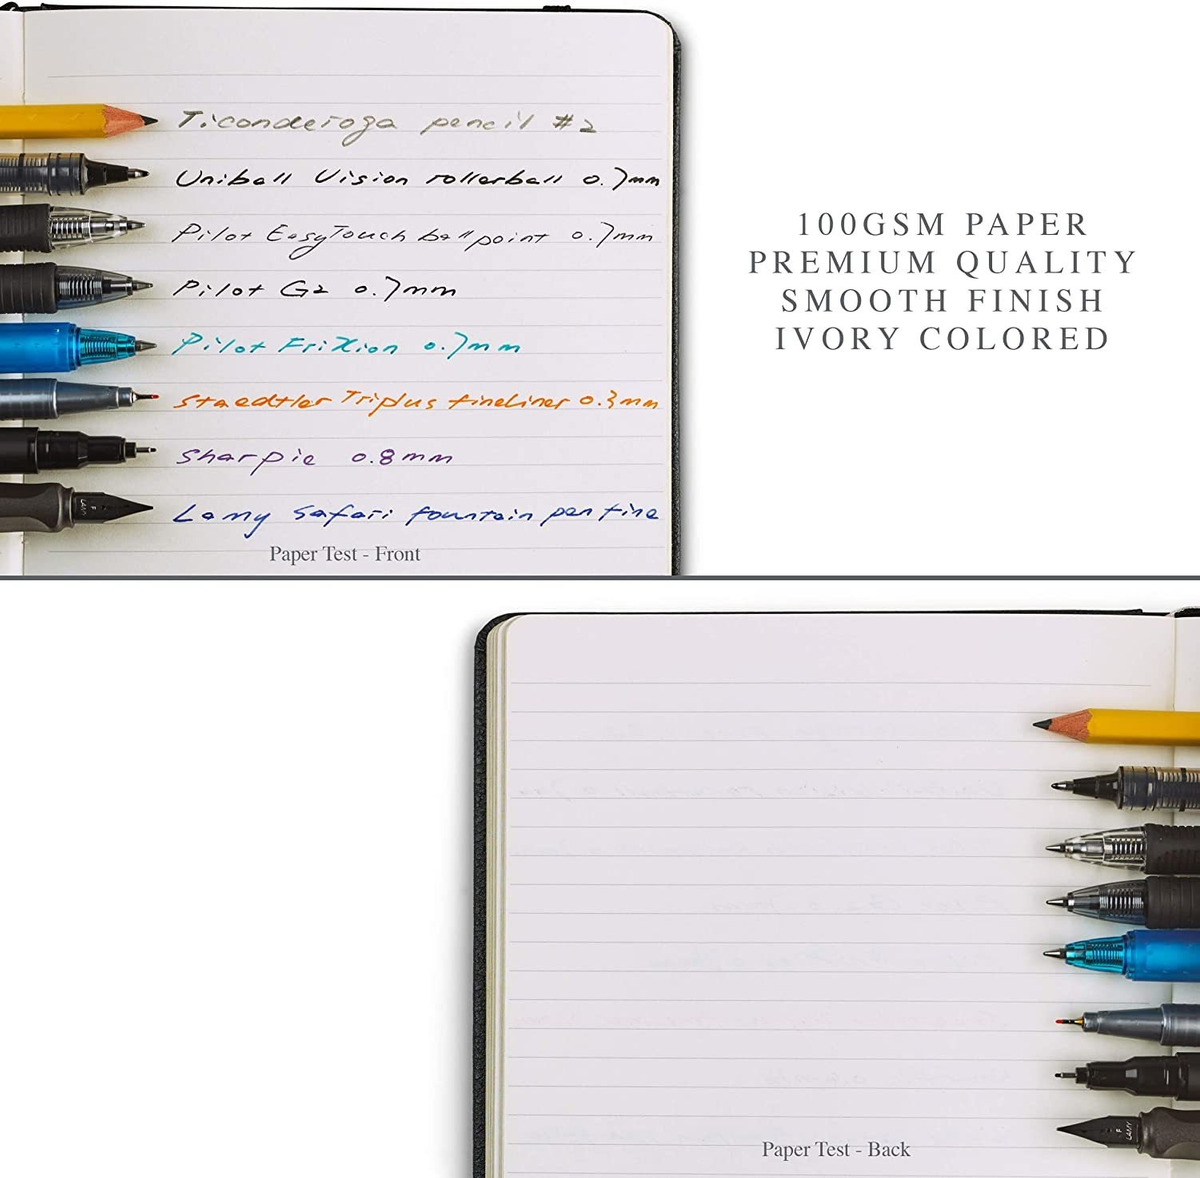 Ticonderoga pencil #2
Uniball Vision rollerball 0.7mm
Pilot EasyTouch ballpoint 0.7mm
Pilot G2 0.7mm
Pilot FriXion 0.7mm
Staedtler Triplus fineliner 0.3mm
Sharpie 0.8mm
Lamy Safari fountain pen fine
Paper Test - Front
100GSM PAPER
PREMIUM QUALITY
SMOOTH FINISH
IVORY COLORED
Paper Test - Back